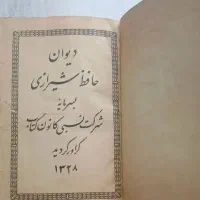 دیوان
حافظ شیرازی
بسرمایهٔ
شرکت نسبی کانون کتاب
گراور گردید
۱۳۲۸